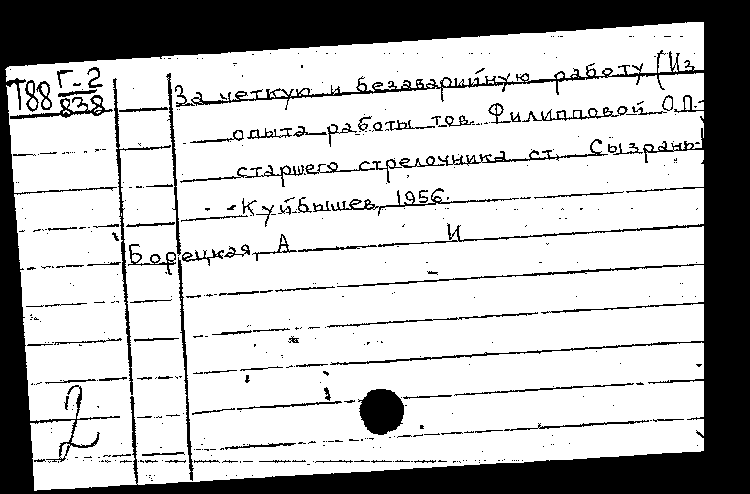 Т88 Г-2
838
За четкую и безаварийную работу (Из
опыта работы тов. Филипповой О.П.-
старшего стрелочника ст. Сызрань-I
- -Куйбышев, 1956.
Борецкая, А И
2